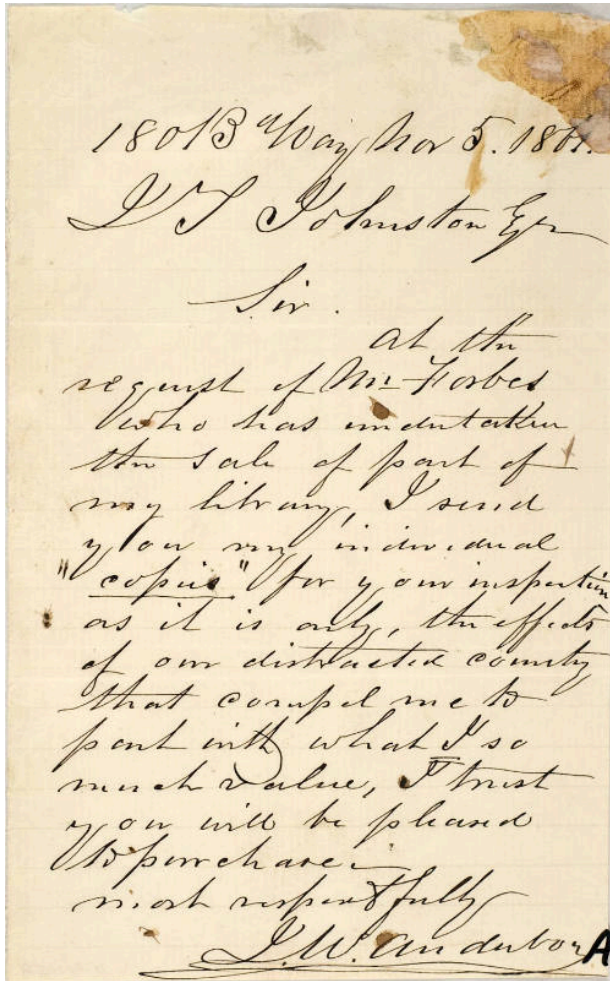 180 B'Way Nov 5. 1861.
J T Johnston Esqr
Sir.
at the
request of Mr Forbes
who has undertaken
the sale of part of
my library, I send
you my individual
"copies" for your inspection
as it is only, the effects
of our distracted country
that compel me to
part with what I so
much value, I trust
you will be pleased
to purchase.
most respectfully
J. W. Audubon
A